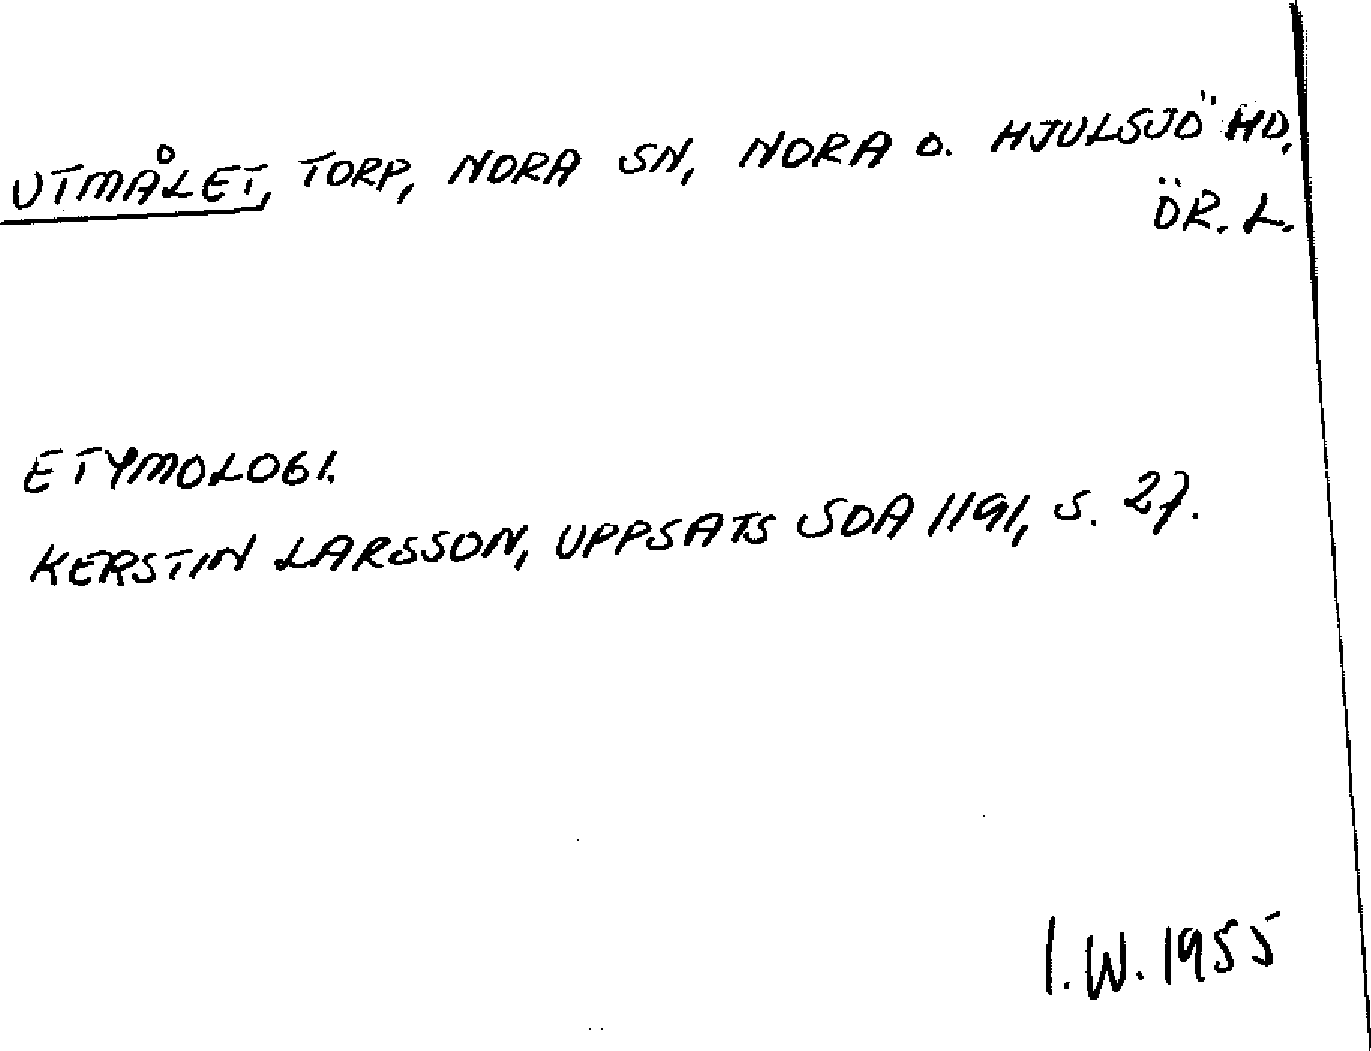 UTMÅLET, TORP, NORA SN, NORA O. HJULSJÖ HD,
ÖR. L.
ETYMOLOGI.
KERSTIN LARSSON, UPPSATS SOA 1191, S. 27.
I.W. 1955